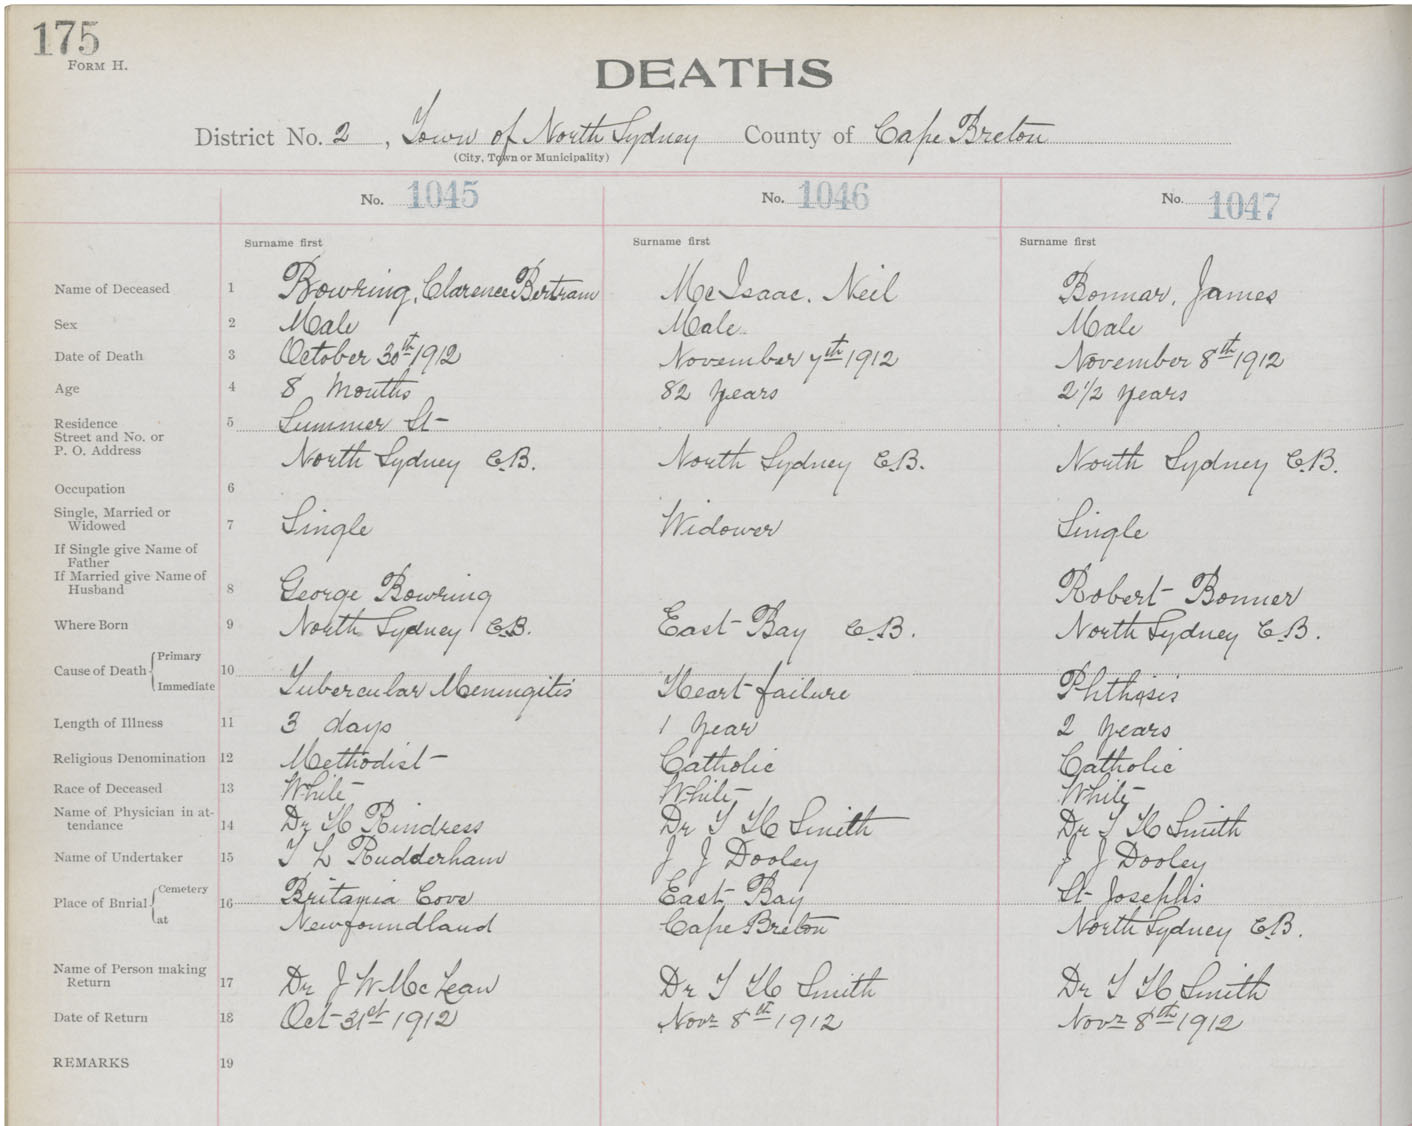 175
FORM H.
DEATHS
District No. 2, Town of North Sydney County of Cape Breton
(City, Town or Municipality)
No. 1045 No. 1046 No. 1047
Surname first Surname first Surname first
Name of Deceased 1 Bowring, Clarence Bertram Mc Isaac, Neil Bonnar, James
Sex 2 Male Male Male
Date of Death 3 October 30th 1912 November 7th 1912 November 8th 1912
Age 4 8 Months 82 years 2 1/2 years
Residence 5 Summer St
Street and No. or
P. O. Address North Sydney C.B. North Sydney C.B. North Sydney C.B.
Occupation 6
Single, Married or
Widowed 7 Single Widower Single
If Single give Name of
Father
If Married give Name of
Husband 8 George Bowring Robert Bonner
Where Born 9 North Sydney C.B. East Bay C.B. North Sydney C.B.
Cause of Death Primary 10
Immediate Tubercular Meningitis Heart failure Phthisis
Length of Illness 11 3 days 1 year 2 years
Religious Denomination 12 Methodist Catholic Catholic
Race of Deceased 13 White White White
Name of Physician in at-
tendance 14 Dr H Rindress Dr T H Smith Dr T H Smith
Name of Undertaker 15 T L Rudderham J J Dooley J J Dooley
Place of Burial Cemetery 16 Britania Cove East Bay St Joseph's
at Newfoundland Cape Breton North Sydney C.B.
Name of Person making
Return 17 Dr J W Mc Lean Dr T H Smith Dr T H Smith
Date of Return 18 Oct 31st 1912 Novr 8th 1912 Novr 8th 1912
REMARKS 19